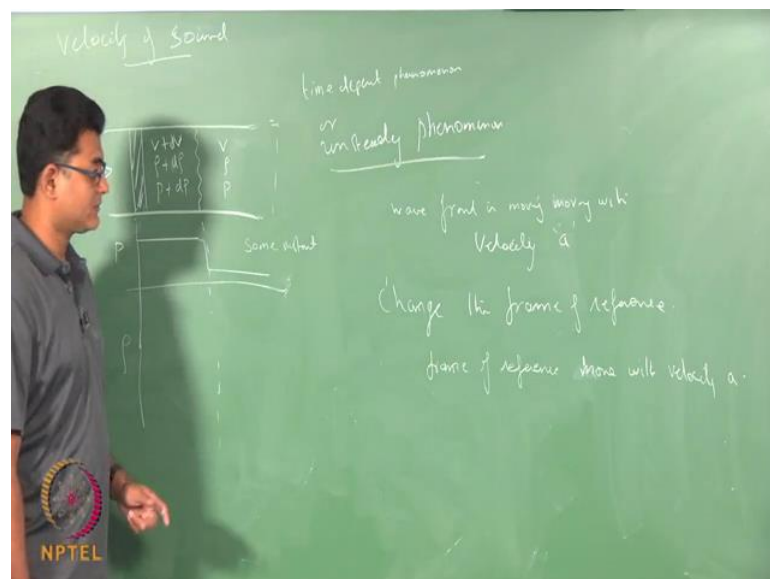 Velocity of Sound
time depent phenomenon
or
unsteady phenomenon
v+dv
ρ+dρ
p+dp
v
ρ
p
wave front is moving moving with
Velocity "a"
P
Some instant
Change the frame of reference.
frame of reference move with velocity a.
ρ
NPTEL